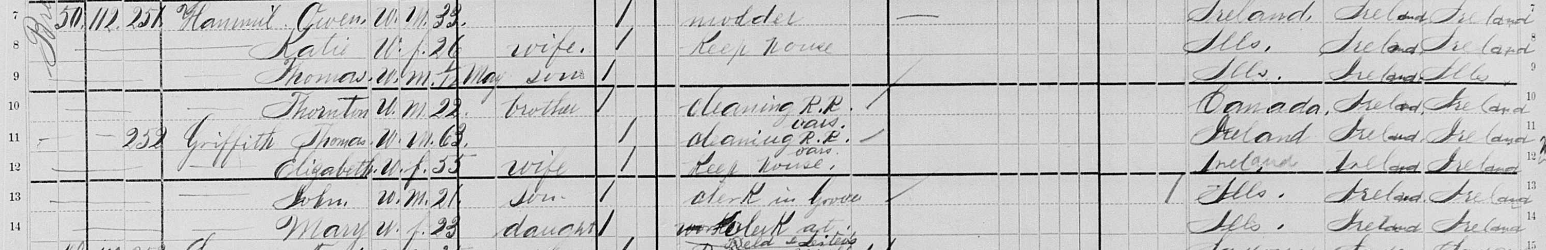 7 50 112 251 Hammil Owen. W. M. 33. / molder — Ireland. Ireland Ireland 7
8 Katie W. f. 26 wife. / Keep house Ills. Ireland Ireland 8
9 Thomas. W. M. 1/12 May son / Ills. Ireland Ills. 9
10 Thornton W. M. 22. brother / cleaning R.R. cars. / Canada. Ireland Ireland 10
11 252 Griffith Thomas. W. M. 63. / cleaning R.R. cars. Ireland Ireland Ireland 11
12 Elizabeth. W. f. 55 wife / Keep house. Ireland Ireland Ireland 12
13 John. W. M. 21 son / clerk in / Ills. Ireland Ireland 13
14 Mary W. f. 23 daught / clerk at Ills. Ireland Ireland
Field & Leiters 15